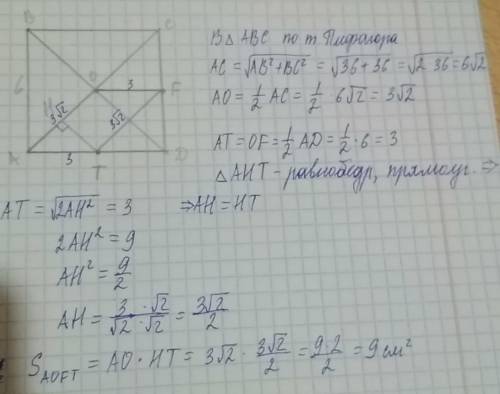 B C
В △ ABC по т. Пифагора
AC = √AB²+BC² = √36+36 = √2·36 = 6√2
6 O 3 F
AO = 1/2 AC = 1/2 · 6√2 = 3√2
H 3√2 3√2
AT = OF = 1/2 AD = 1/2 · 6 = 3
A 3 T D
△ AHT - равнобедр, прямоуг. ⇒
AT = √2AH² = 3 ⇒ AH = HT
2AH² = 9
AH² = 9/2
AH = 3·√2/√2·√2 = 3√2/2
S AOFT = AO · HT = 3√2 · 3√2/2 = 9·2/2 = 9 см²